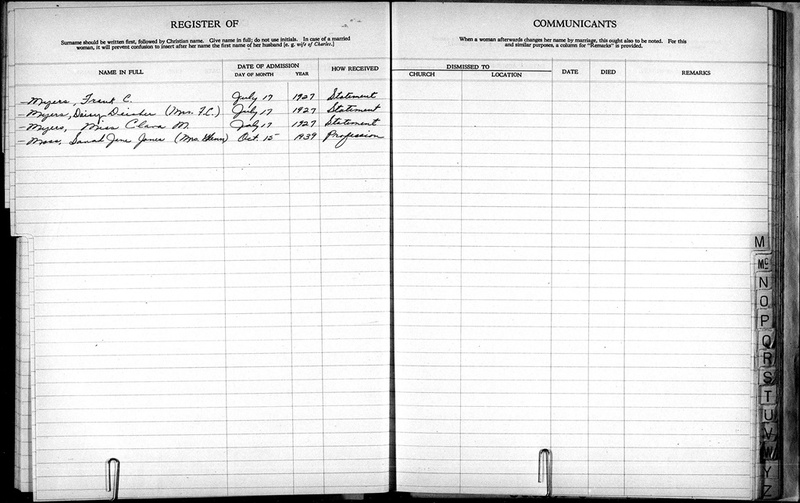 REGISTER OF
Surname should be written first, followed by Christian name. Give name in full; do not use initials. In case of a married
woman, it will prevent confusion to insert after her name the first name of her husband [e. g. wife of Charles.]
NAME IN FULL
DATE OF ADMISSION
DAY OF MONTH
YEAR
HOW RECEIVED
Myers, Frank C. July 17 1927 Statement
Myers, Daisy (Mrs. F.C.) July 17 1927 Statement
Myers, Miss Clara M. July 17 1927 Statement
Moss, Sarah Jane Jones (Mrs. Glenn) Oct. 15 1939 Profession
COMMUNICANTS
When a woman afterwards changes her name by marriage, this ought also to be noted. For this
and similar purposes, a column for "Remarks" is provided.
DISMISSED TO
CHURCH
LOCATION
DATE
DIED
REMARKS
M
Mc
N
O
P
Q
R
S
T
U
V
W
Y
Z